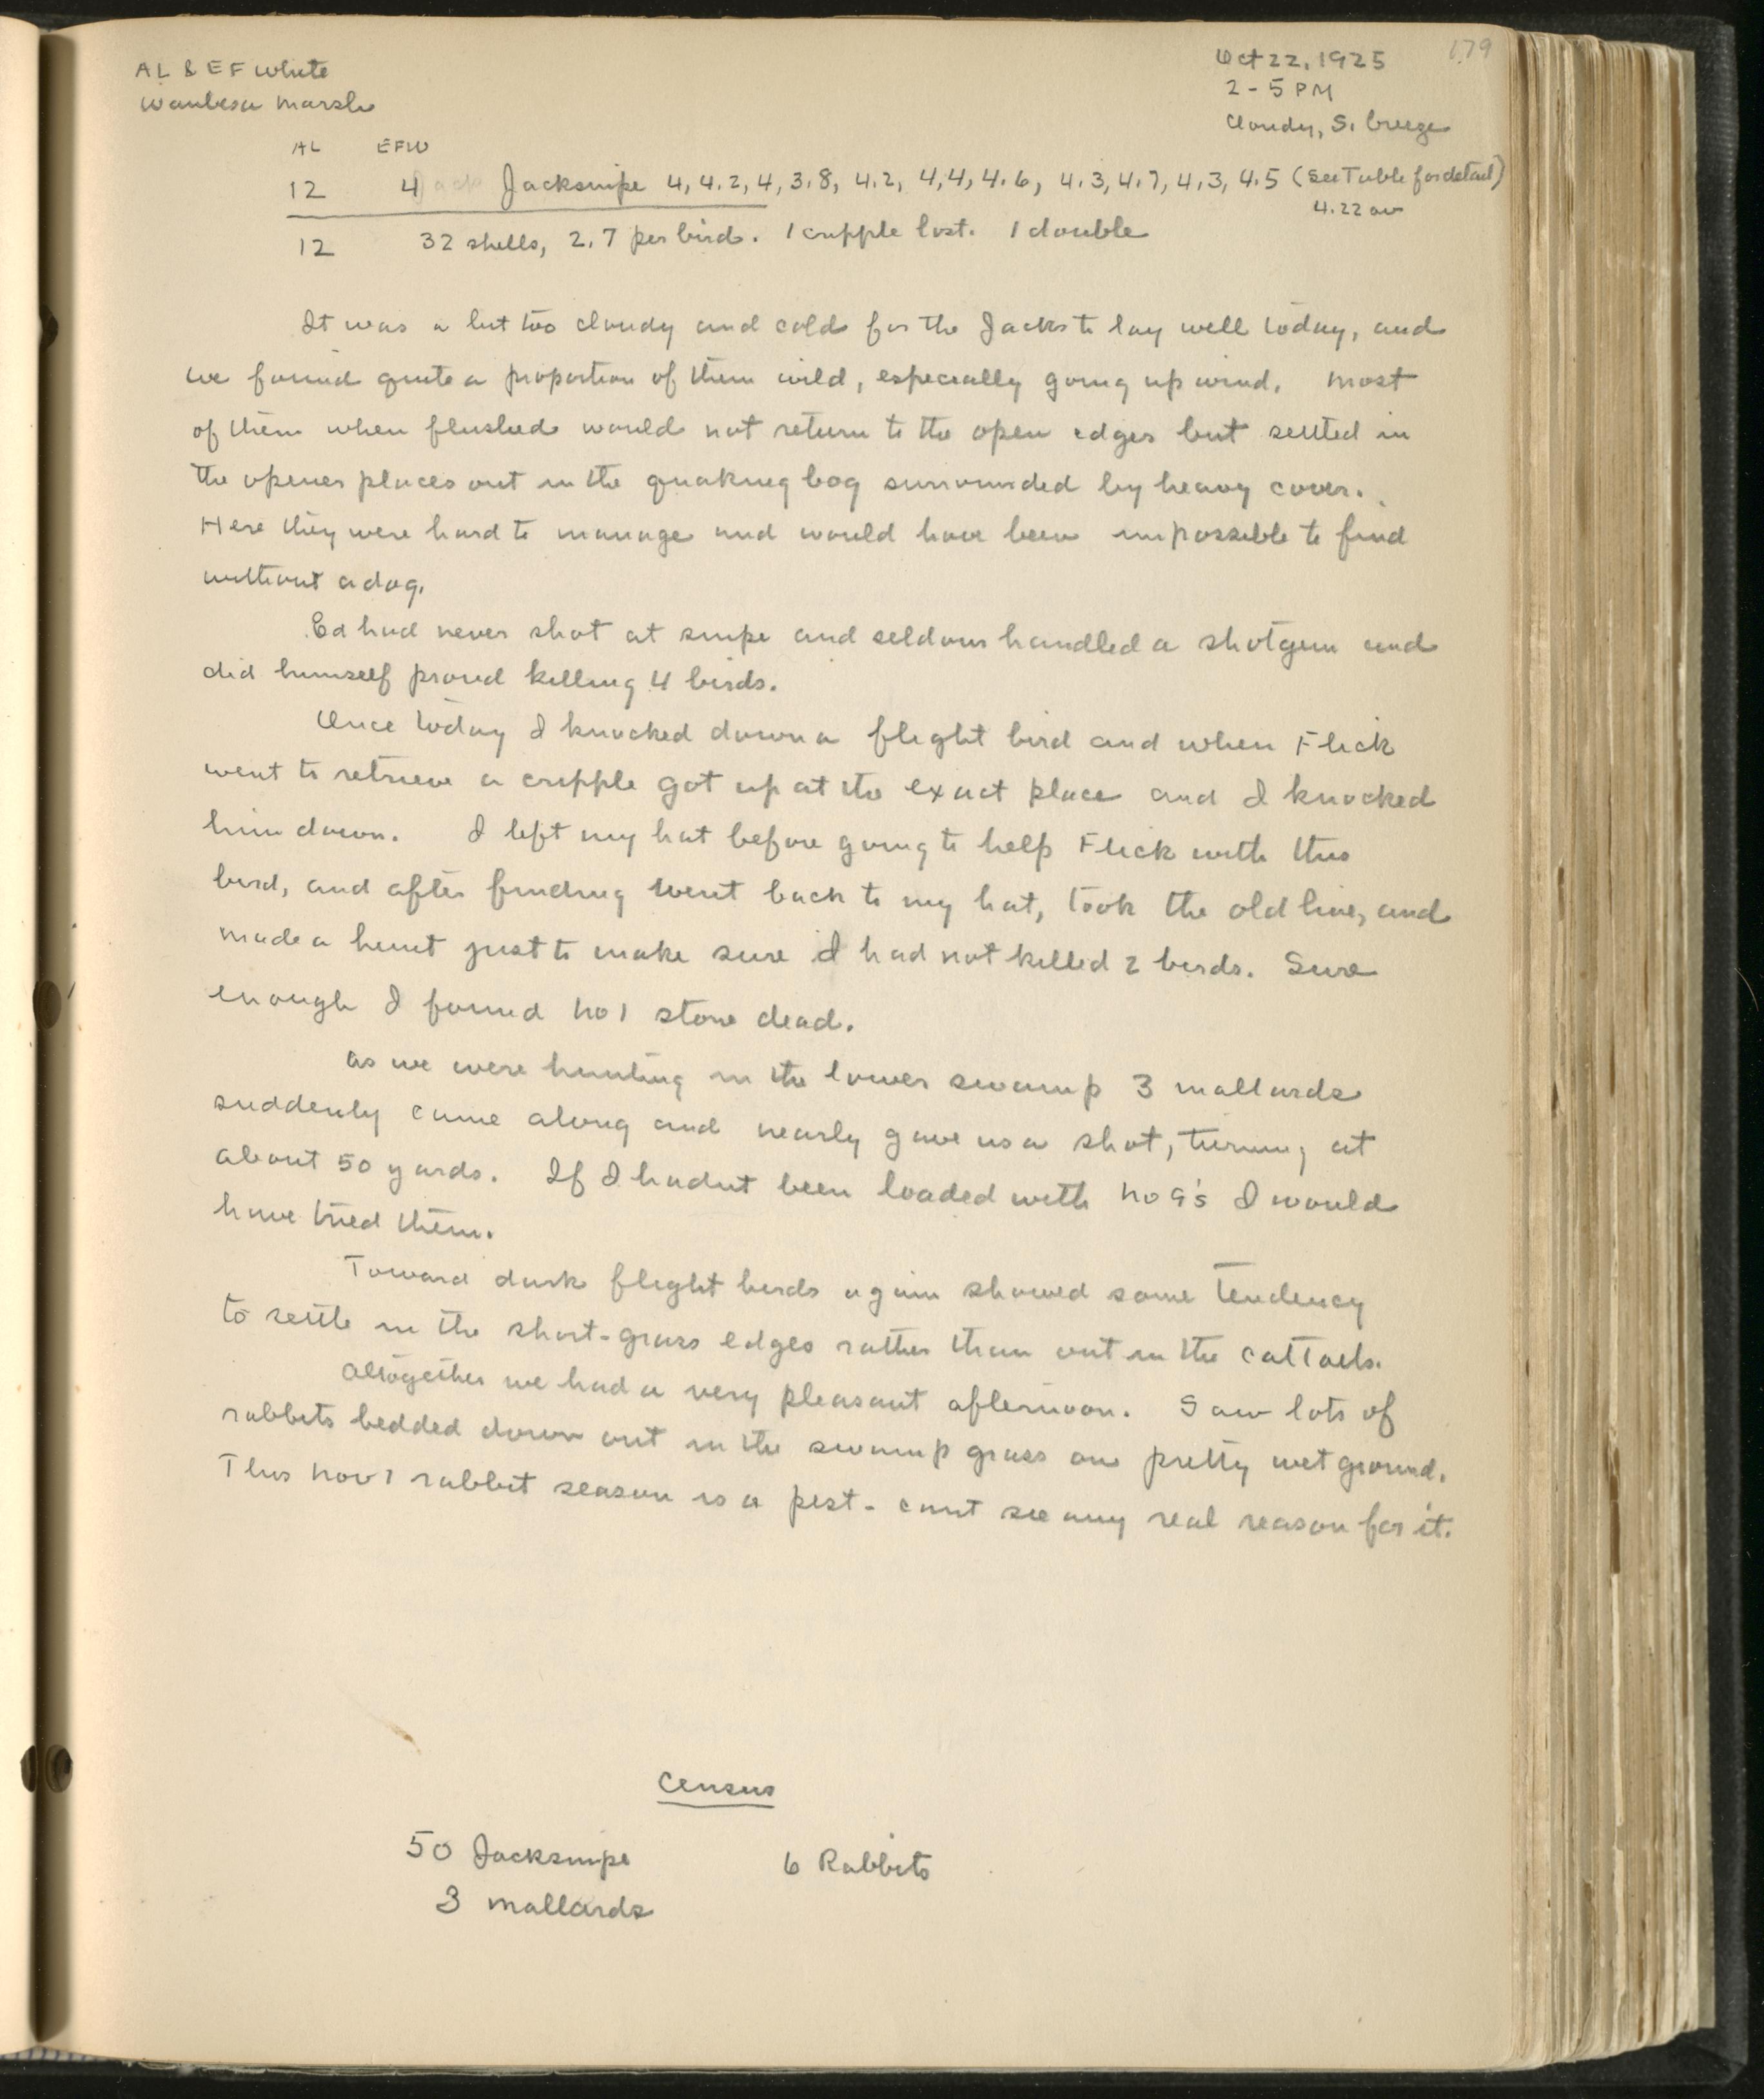 179
AL & EF White
Waubesa Marsh
Oct 22, 1925
2 - 5 PM
Cloudy, S. breeze
AL EFW
12 4 Jack Jacksnipe 4, 4.2, 4, 3.8, 4.2, 4, 4, 4.6, 4.3, 4.7, 4.3, 4.5 (See Table for detail)
4.22 av
12 32 shells, 2.7 per bird. 1 cripple lost. 1 double
It was a bit too cloudy and cold for the Jacks to lay well today, and
we found quite a proportion of them wild, especially going up wind. Most
of them when flushed would not return to the open edges but settled in
the opener places out in the quaking bog surrounded by heavy cover.
Here they were hard to manage and would have been impossible to find
without a dog.
Ed had never shot at snipe and seldom handled a shotgun and
did himself proud killing 4 birds.
Once today I knocked down a flight bird and when Flick
went to retrieve a cripple got up at the exact place and I knocked
him down. I left my hat before going to help Flick with this
bird, and after finding went back to my hat, took the old line, and
made a hunt just to make sure I had not killed 2 birds. Sure
enough I found No 1 stone dead.
As we were hunting in the lower swamp 3 mallards
suddenly came along and nearly gave us a shot, turning at
about 50 yards. If I hadnt been loaded with No 9's I would
have tried them.
Toward dusk flight birds again showed some tendency
to settle in the short-grass edges rather than out in the cattails.
Altogether we had a very pleasant afternoon. Saw lots of
rabbits bedded down out in the swamp grass on pretty wet ground.
This Nov 1 rabbit season is a pest - cant see any real reason for it.
Census
50 Jacksnipe 6 Rabbits
3 mallards